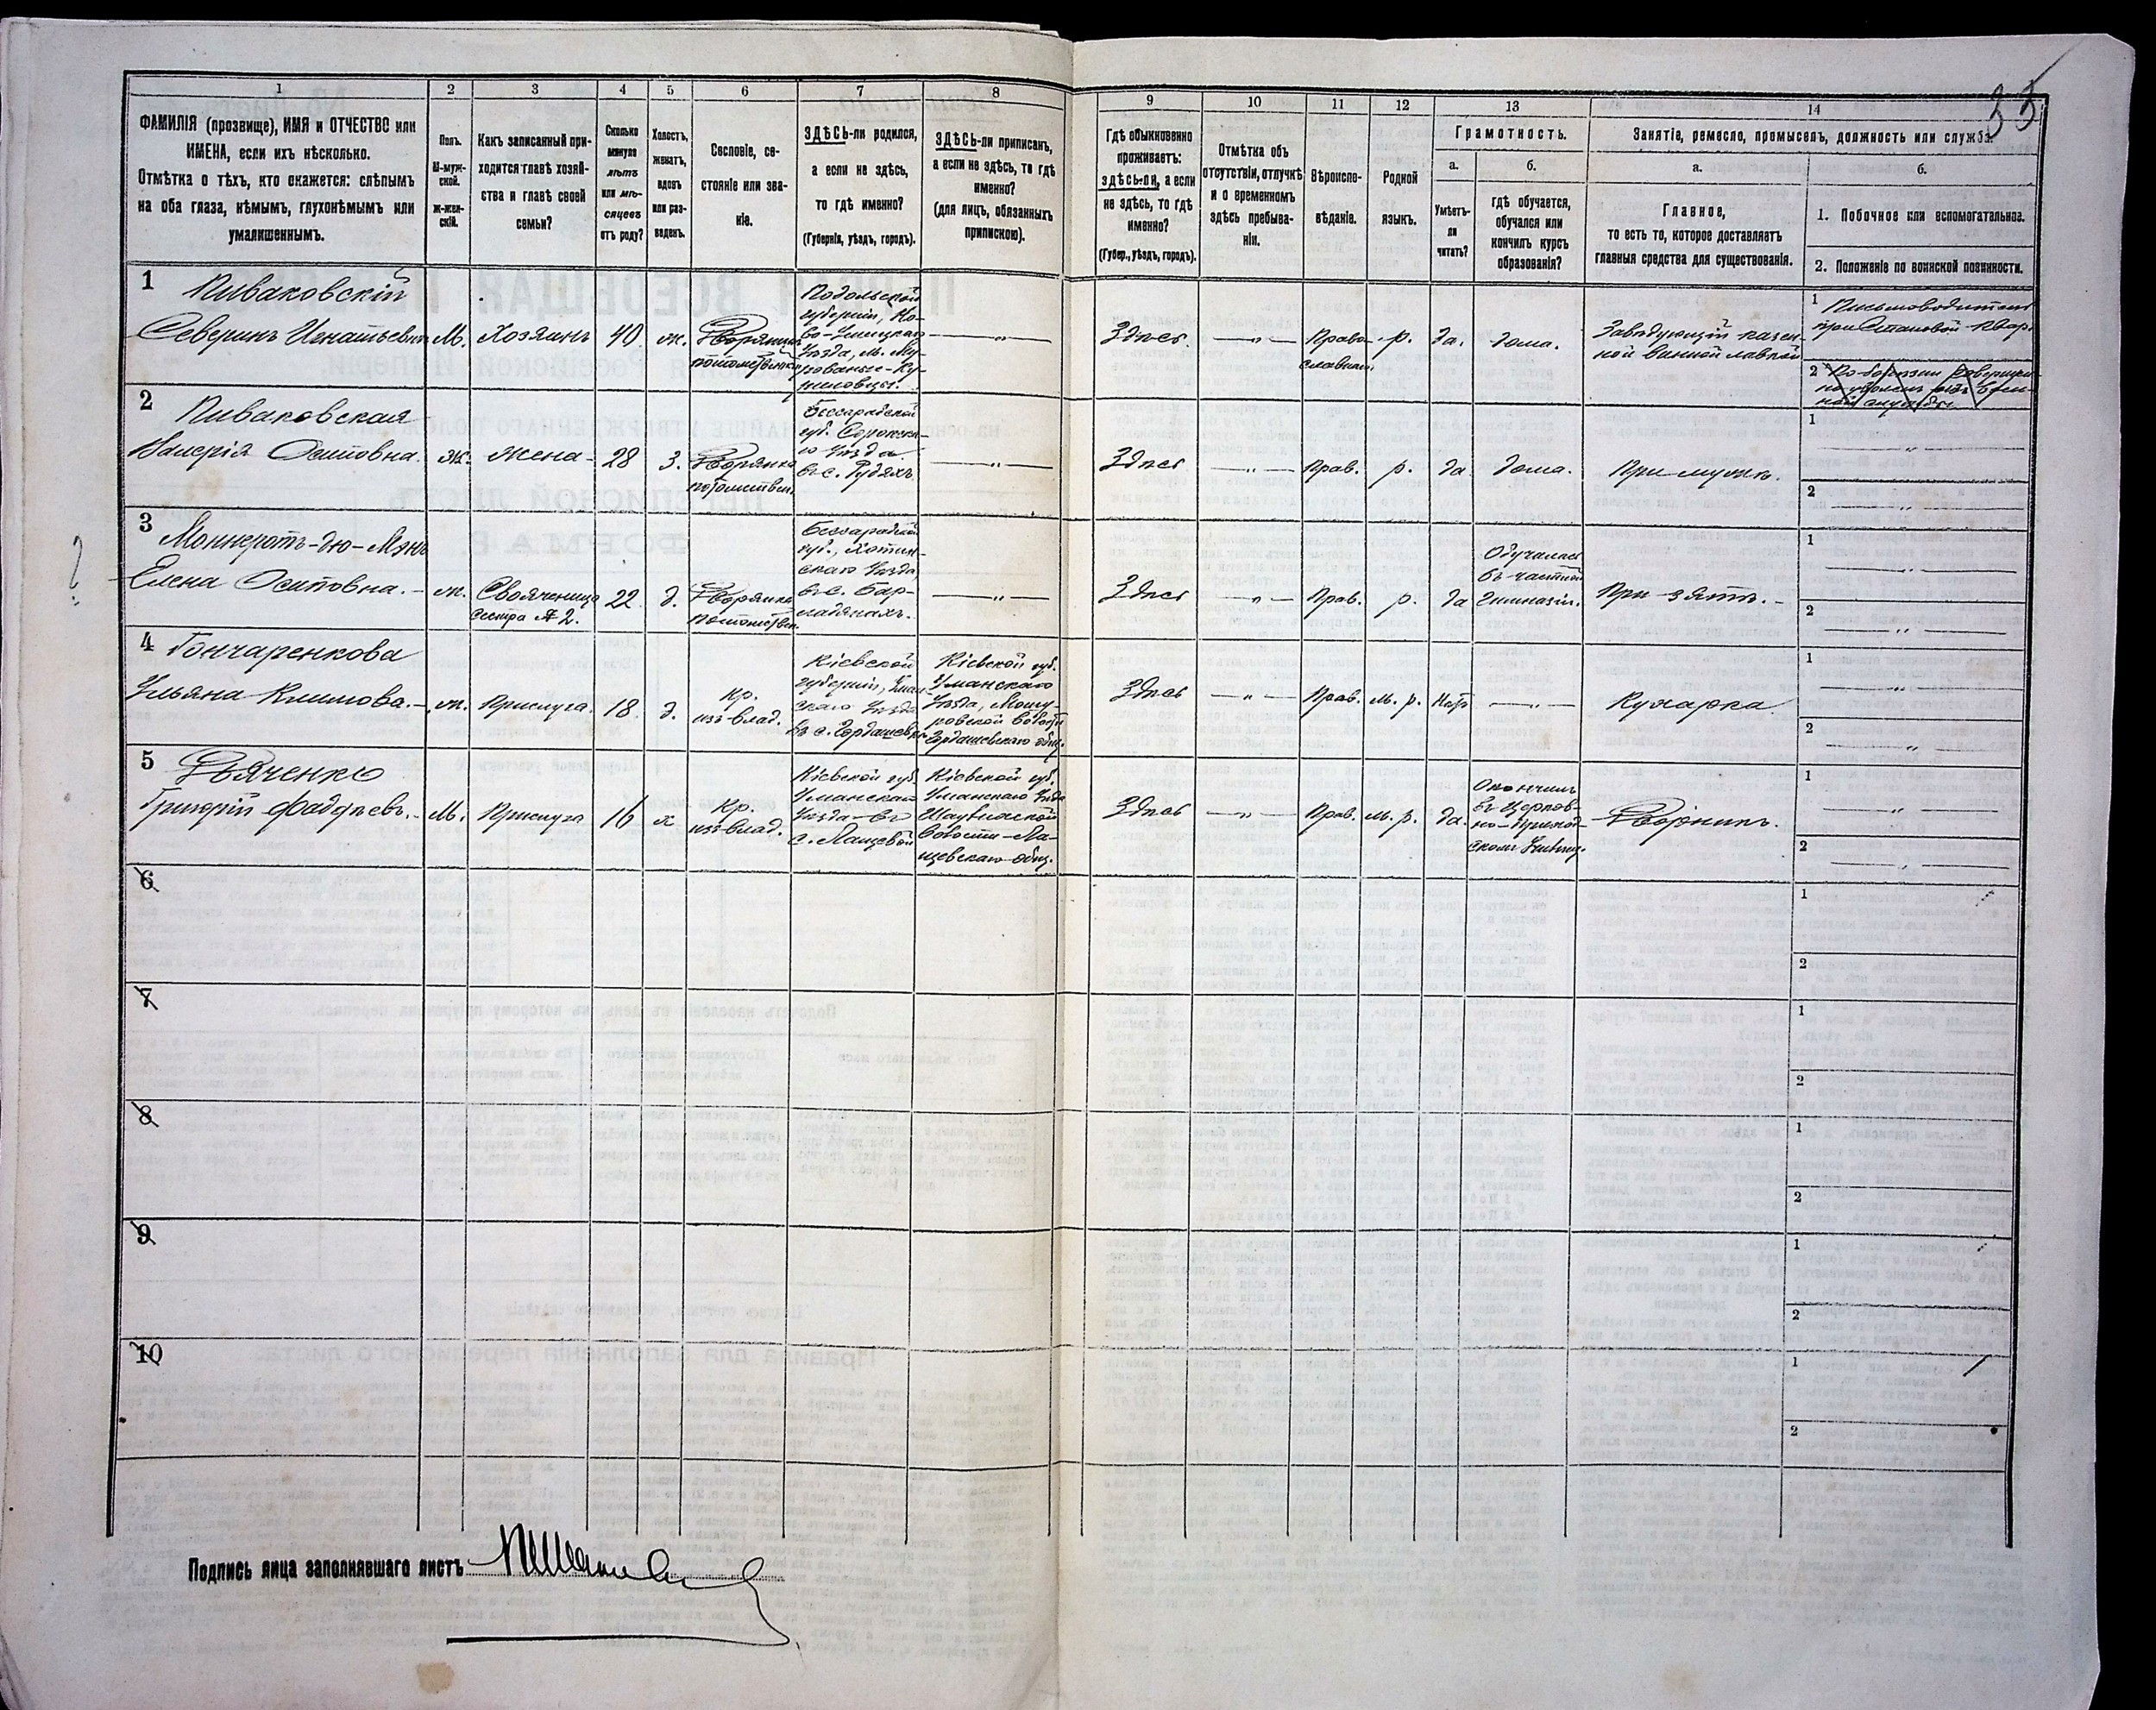 33
1 2 3 4 5 6 7 8 9 10 11 12 13 14
ФАМИЛІЯ (прозвище), ИМЯ и ОТЧЕСТВО или
ИМЕНА, если ихъ нѣсколько.
Отмѣтка о тѣхъ, кто окажется: слѣпымъ
на оба глаза, нѣмымъ, глухонѣмымъ или
умалишеннымъ.
Полъ.
М-муж-
ской.
Ж-жен-
скій.
Какъ записанный при-
ходится главѣ хозяй-
ства и главѣ своей
семьи?
Сколько
минуло
лѣтъ
или мѣ-
сяцевъ
отъ роду?
Холостъ,
женатъ,
вдовъ
или раз-
веденъ.
Сословіе, со-
стояніе или зва-
ніе.
ЗДѢСЬ-ли родился,
а если не здѣсь,
то гдѣ именно?
(Губернія, уѣздъ, городъ).
ЗДѢСЬ-ли приписанъ,
а если не здѣсь, то гдѣ
именно?
(для лицъ, обязанныхъ
припискою).
Гдѣ обыкновенно
проживаетъ:
здѣсь-ли, а если
не здѣсь, то гдѣ
именно?
(Губер., уѣздъ, городъ).
Отмѣтка объ
отсутствіи, отлучкѣ
и о временномъ
здѣсь пребыва-
ніи.
Вѣроиспо-
вѣданіе.
Родной
языкъ.
Грамотность.
а.
Умѣетъ-
ли
читать?
б.
гдѣ обучается,
обучался или
кончилъ курсъ
образованія?
Занятіе, ремесло, промыселъ, должность или служба.
а.
Главное,
то есть то, которое доставляетъ
главныя средства для существованія.
б.
1. Побочное или вспомогательное.
2. Положеніе по воинской повинности.
1 Пиваковскій
Северинъ Игнатьевич
М.
Хозяинъ
40
ж.
Дворянинъ
потомственный
Подольской
губерніи, Но-
во-Ушицкаго
Уѣзда, м. Му-
рованые-Ку-
риловцы.
— „ —
Здѣсь.
— „ —
Право-
славный
р.
да.
дома.
Завѣдующій казен-
ной винной лавкой
1 Письмоводитель
при Становой Квар.
2
2 Пиваковская
Валерія Осиповна.
ж.
Жена
28
З.
Дворянка
потомствен.
Бессарабской
губ. Сорокска-
го Уѣзда
въ с. Рудяхъ
— „ —
Здѣсь
— „ —
Прав.
р.
да
дома.
При мужѣ.
1 — „ —
2 — „ —
3 Монкротъ-дю-Мэнъ
Елена Осиповна.
ж.
Свояченица
сестра № 2.
22
д.
Дворянка
потомствен.
Бессарабской
губ., Хотин-
скаго Уѣзда,
въ с. Бар-
ладянахъ.
— „ —
Здѣсь
— „ —
Прав.
р.
да
Обучалась
въ частной
гимназіи.
При зятѣ.
1 — „ —
2 — „ —
4 Гончаренкова
Ульяна Климова.
ж.
Прислуга.
18
д.
Кр.
изъ влад.
Кіевской
губерніи, Уман-
скаго Уѣзда
въ с. Гордашевкѣ
Кіевской губ.
Уманскаго
Уѣзда, Мошу-
ровской волости
Гордашевскаго общ.
Здѣсь
— „ —
Прав.
м. р.
Нѣт
— „ —
Кухарка
1 — „ —
2 — „ —
5 Дьяченко
Григорій Фаддѣевъ.
М.
Прислуга
16
х
Кр.
изъ влад.
Кіевской губ.
Уманскаго
Уѣзда въ
с. Лащевой
Кіевской губ.
Уманскаго Уѣзда
волости Ла-
щевскаго общ.
Здѣсь
— „ —
Прав.
м. р.
да.
Окончилъ
въ Церков-
но-приход-
скомъ Училищ.
Дворникъ.
1 — „ —
2 — „ —
6 1 2
7 1 2
8 1 2
9 1 2
10 1 2
?
Подпись лица заполнявшаго листъ